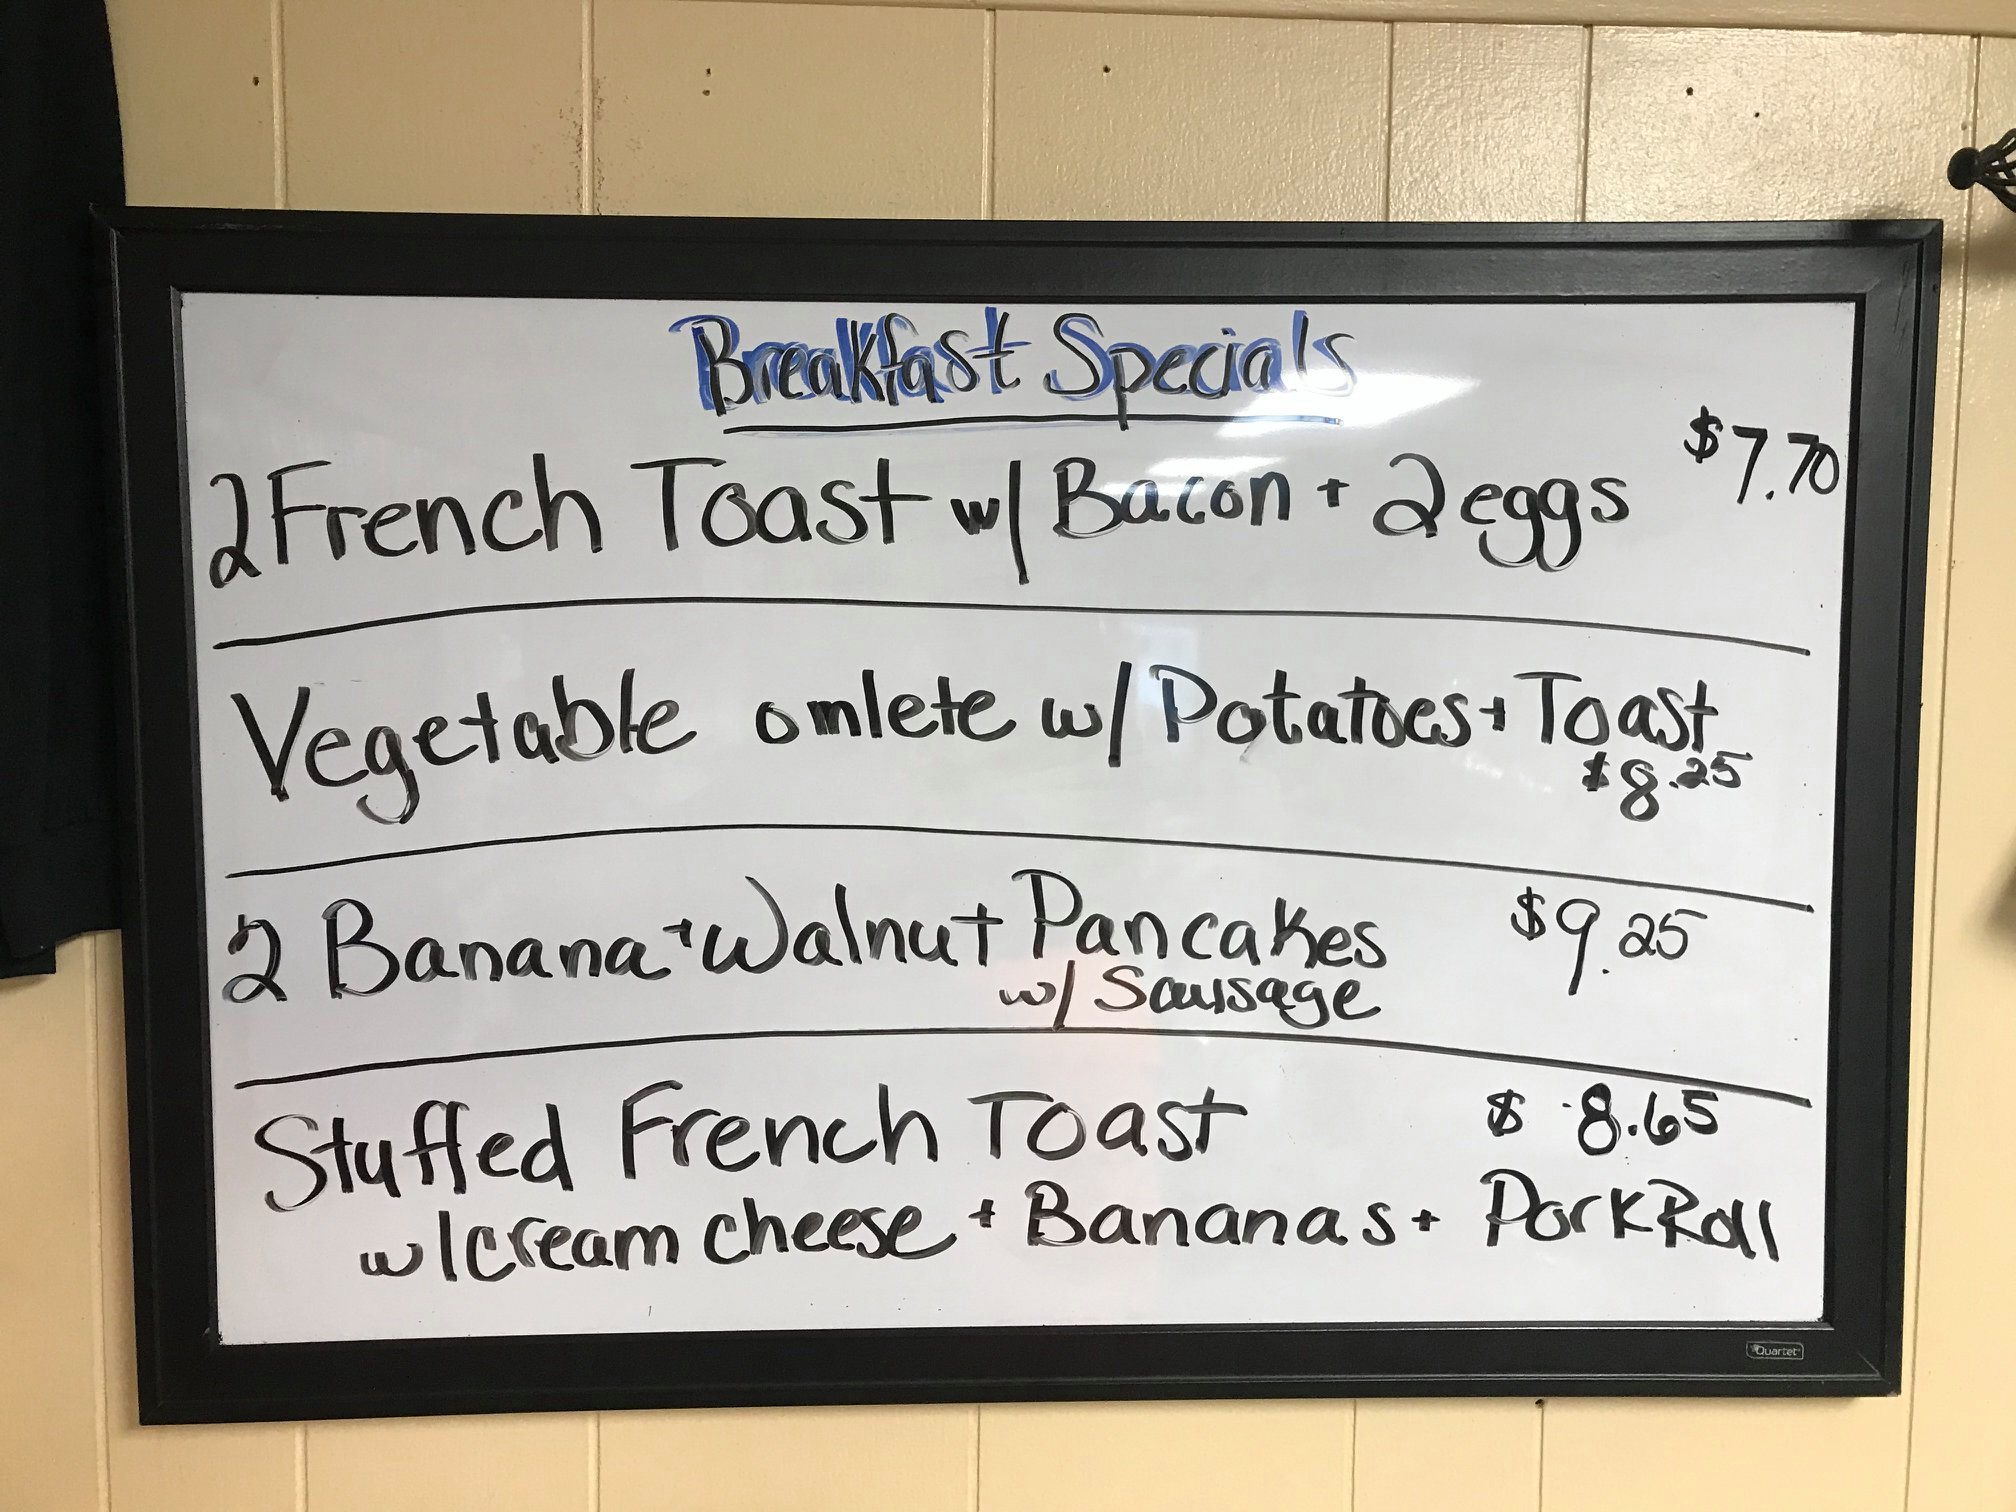 Breakfast Specials
2 French Toast w/ Bacon + 2 eggs $7.70
Vegetable omlete w/ Potatoes + Toast
$8.25
2 Banana + Walnut Pancakes $9.25
w/ Sausage
Stuffed French Toast $8.65
w/ cream cheese + Bananas + Pork Roll
Quartet